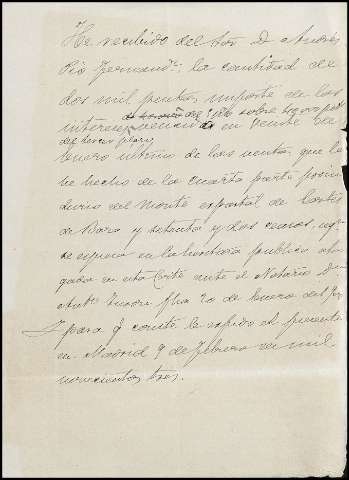 He recibido del Sor. D. Andrés
Pio Fernandz. la cantidad de
dos mil pesetas, importe de los
intereses vencidos en veinte de
del tercer plazo
Enero último de la venta, que le
he hecho de la cuarta parte proin
diviso del Monte
de Bara y setenta y dos censos, 
se expresa en la escritura publica otor
gada en esta Corte ante el Notario Dn
fha 20 de Enero del
Y para q conste le expido el presente
en Madrid 9 de Febrero de mil
novecientos tres.